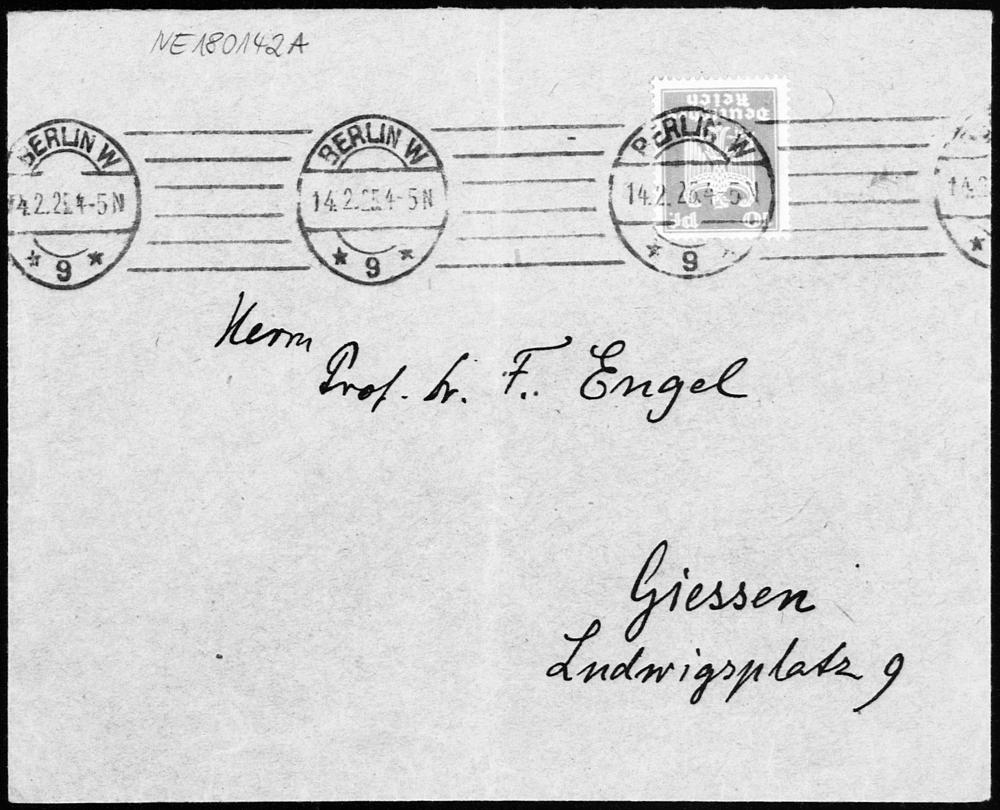 NE180142A
BERLIN W
14.2.25.4-5N
* 9 *
BERLIN W
14.2.25.4-5N
* 9 *
BERLIN W
14.2.25.4-5N
* 9 *
Deutsches
Reich
10 Pf.
Herrn
Prof. Dr. F. Engel
Giessen
Ludwigsplatz 9